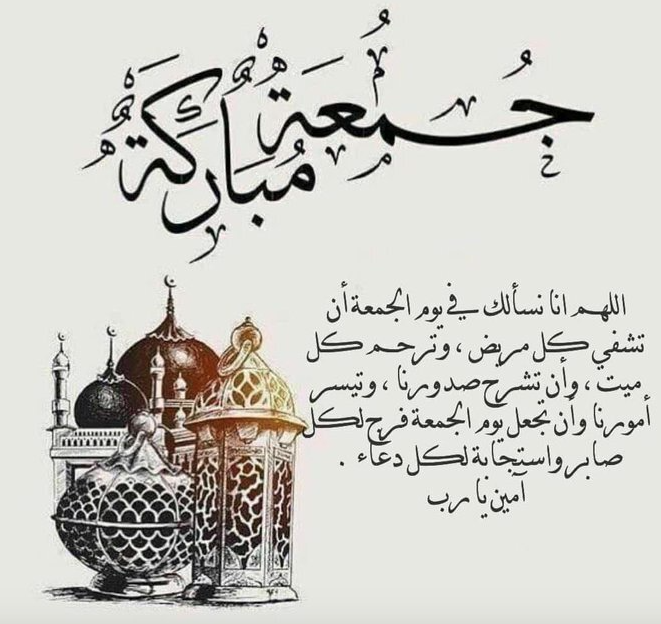 جُمعَة
مُبَارَكَة
اللهم انا نسألك في يوم الجمعة أن
تشفي كل مريض ، وترحم كل
ميت ، وأن تشرح صدورنا ، وتيسر
أمورنا وأن تجعل يوم الجمعة فرج لكل
صابر واستجابة لكل دعاء .
آمين يا رب